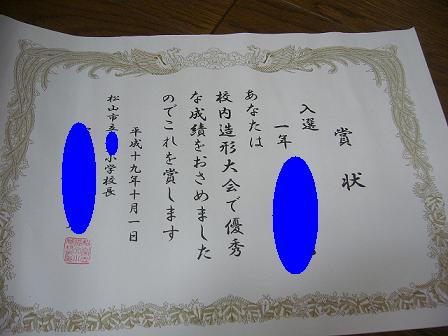 賞状
入選
一年
あなたは
校内造形大会で優秀
な成績をおさめました
のでこれを賞します
平成十九年十月一日
松山市立
小学校長